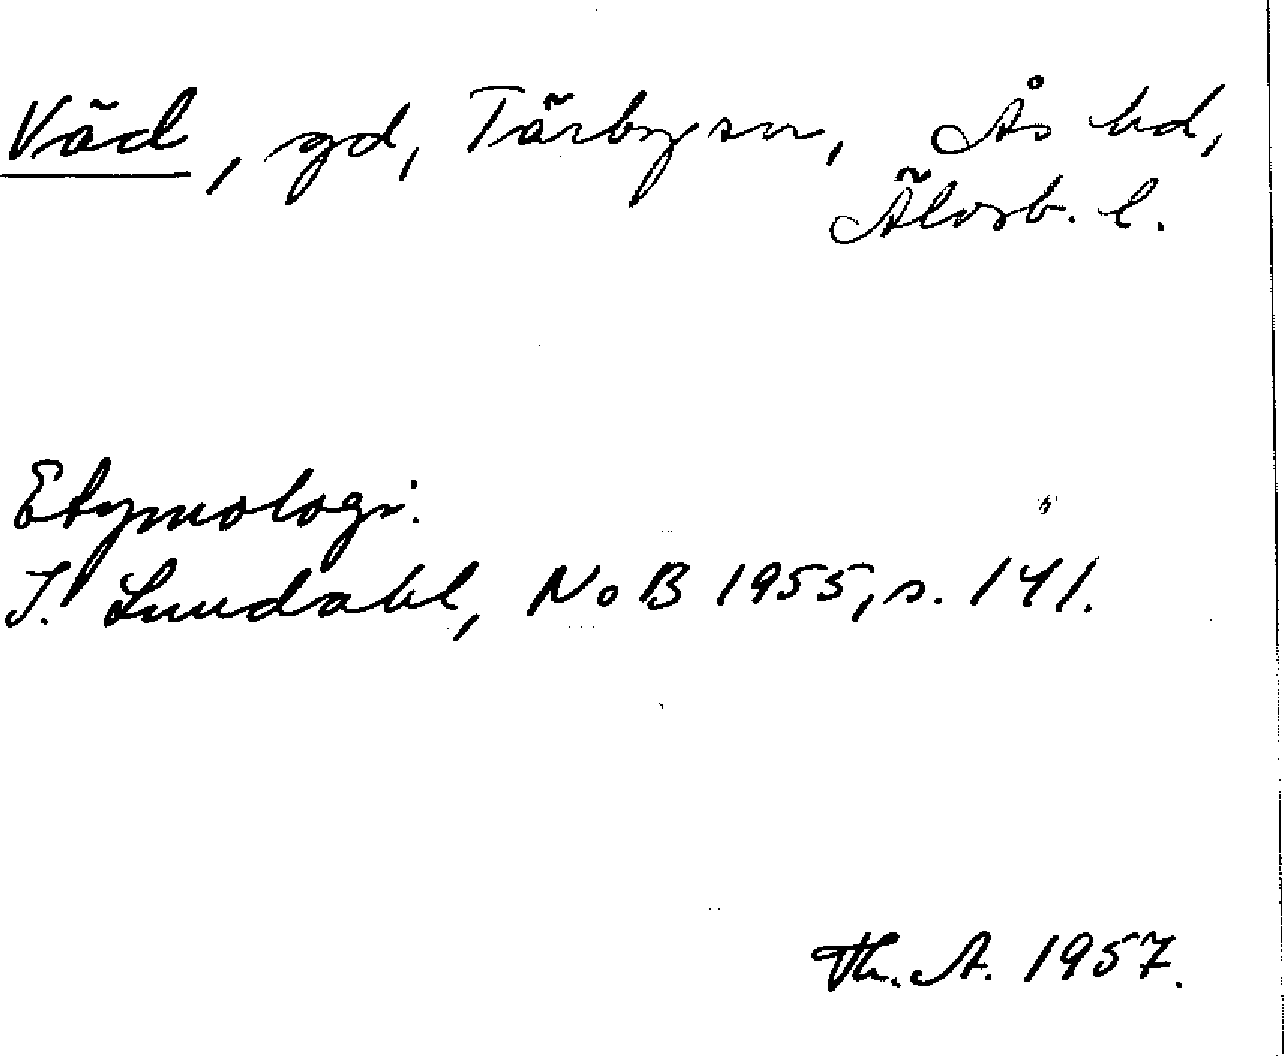 Väd, gd, Tärby sn, Ås hd,
Älvsb. l.
Etymologi:
I. Lundahl, NoB 1955, s. 141.
Th. A. 1957.